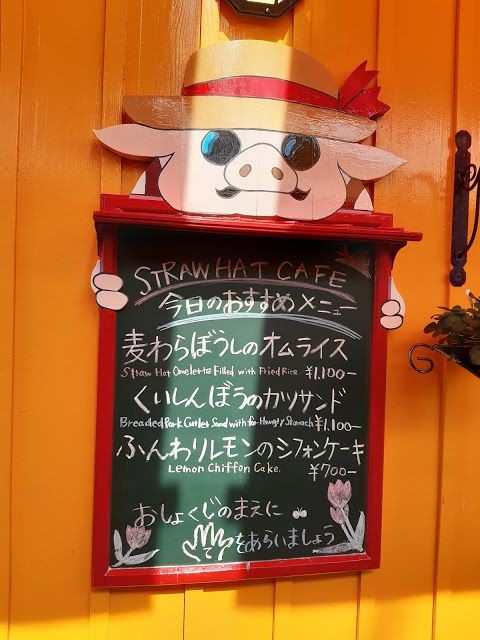 STRAW HAT CAFE
今日のおすすめメニュー
麦わらぼうしのオムライス
Straw Hat Omelette Filled with Fried Rice ¥1,100-
くいしんぼうのカツサンド
Breaded Pork Cutlet Sand with for Hungry Stomach ¥1,100-
ふんわりレモンのシフォンケーキ
Lemon Chiffon Cake. ¥700-
おしょくじのまえに
てをあらいましょう